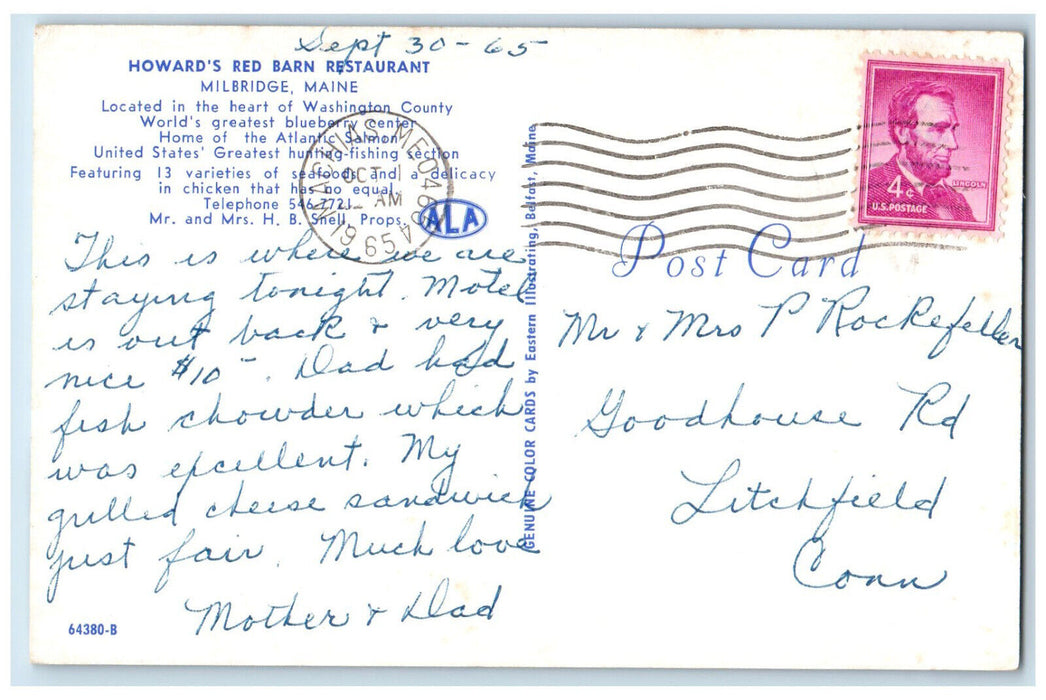 Sept 30-65
HOWARD'S RED BARN RESTAURANT
MILBRIDGE, MAINE
Located in the heart of Washington County
World's greatest blueberry center
Home of the Atlantic Salmon
United States' Greatest hunting-fishing section
Featuring 13 varieties of seafoods and a delicacy
in chicken that has no equal
Telephone 546-7721
Mr. and Mrs. H. B. Snell, Props.
ALA
OCT 1
AM
1965
This is where we are
staying tonight. Motel
is out back & very
nice $10-. Dad had
fish chowder which
was excellent. My
grilled cheese sandwich
just fair. Much love
Mother & Dad
64380-B
GENUINE COLOR CARDS by Eastern Illustrating, Belfast, Maine
4¢
LINCOLN
U.S. POSTAGE
Post Card
Mr & Mrs P Rockefeller
Goodhouse Rd
Litchfield
Conn